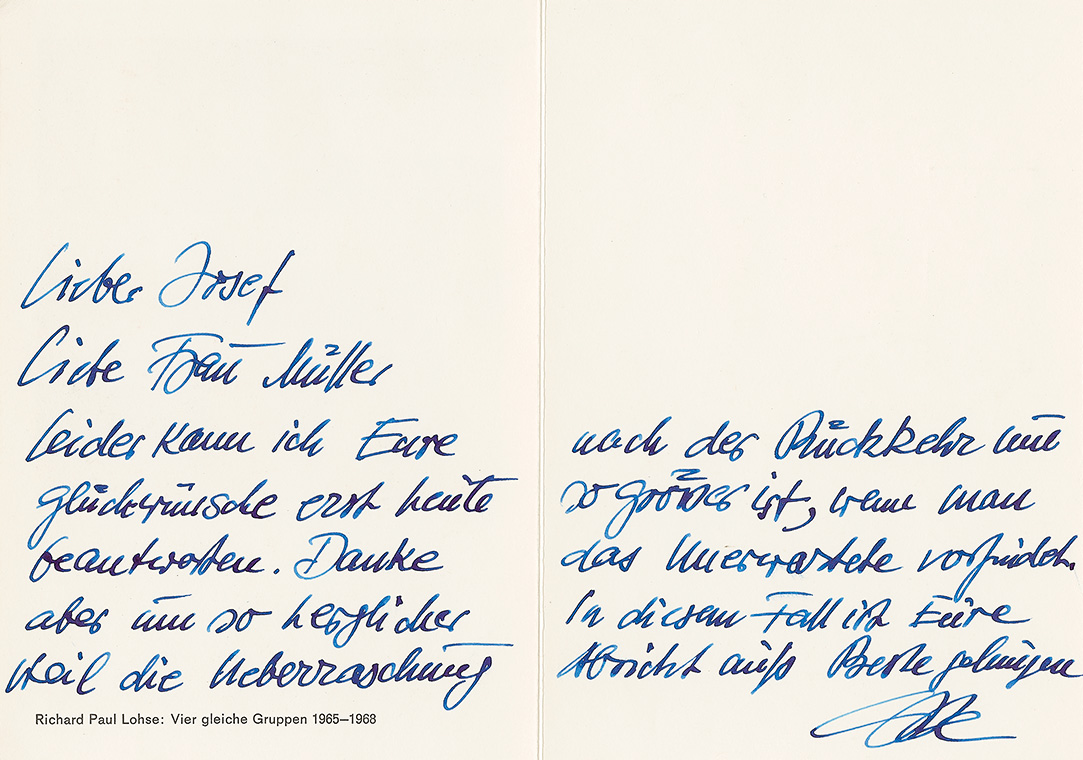 Lieber Josef
Liebe Frau Müller
leider kann ich Eure
glückwünsche erst heute
beantworten. Danke
aber um so herzlicher
weil die Ueberraschung
Richard Paul Lohse: Vier gleiche Gruppen 1965–1968
nach der Rückkehr um
so grösser ist, wenn man
das Unerwartete vorfindet.
In diesem Fall ist Eure
Absicht aufs Beste gelungen